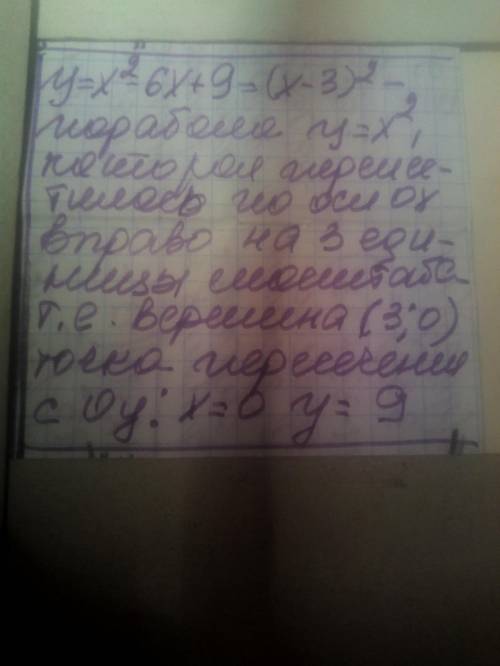 y=x²-6x+9=(x-3)²-
парабола y=x²,
которая перемес-
тилась по оси ОХ
вправо на 3 еди-
ницы масштаба
т.е. вершина (3;0)
точка пересечения
с Оу: x=0 y=9